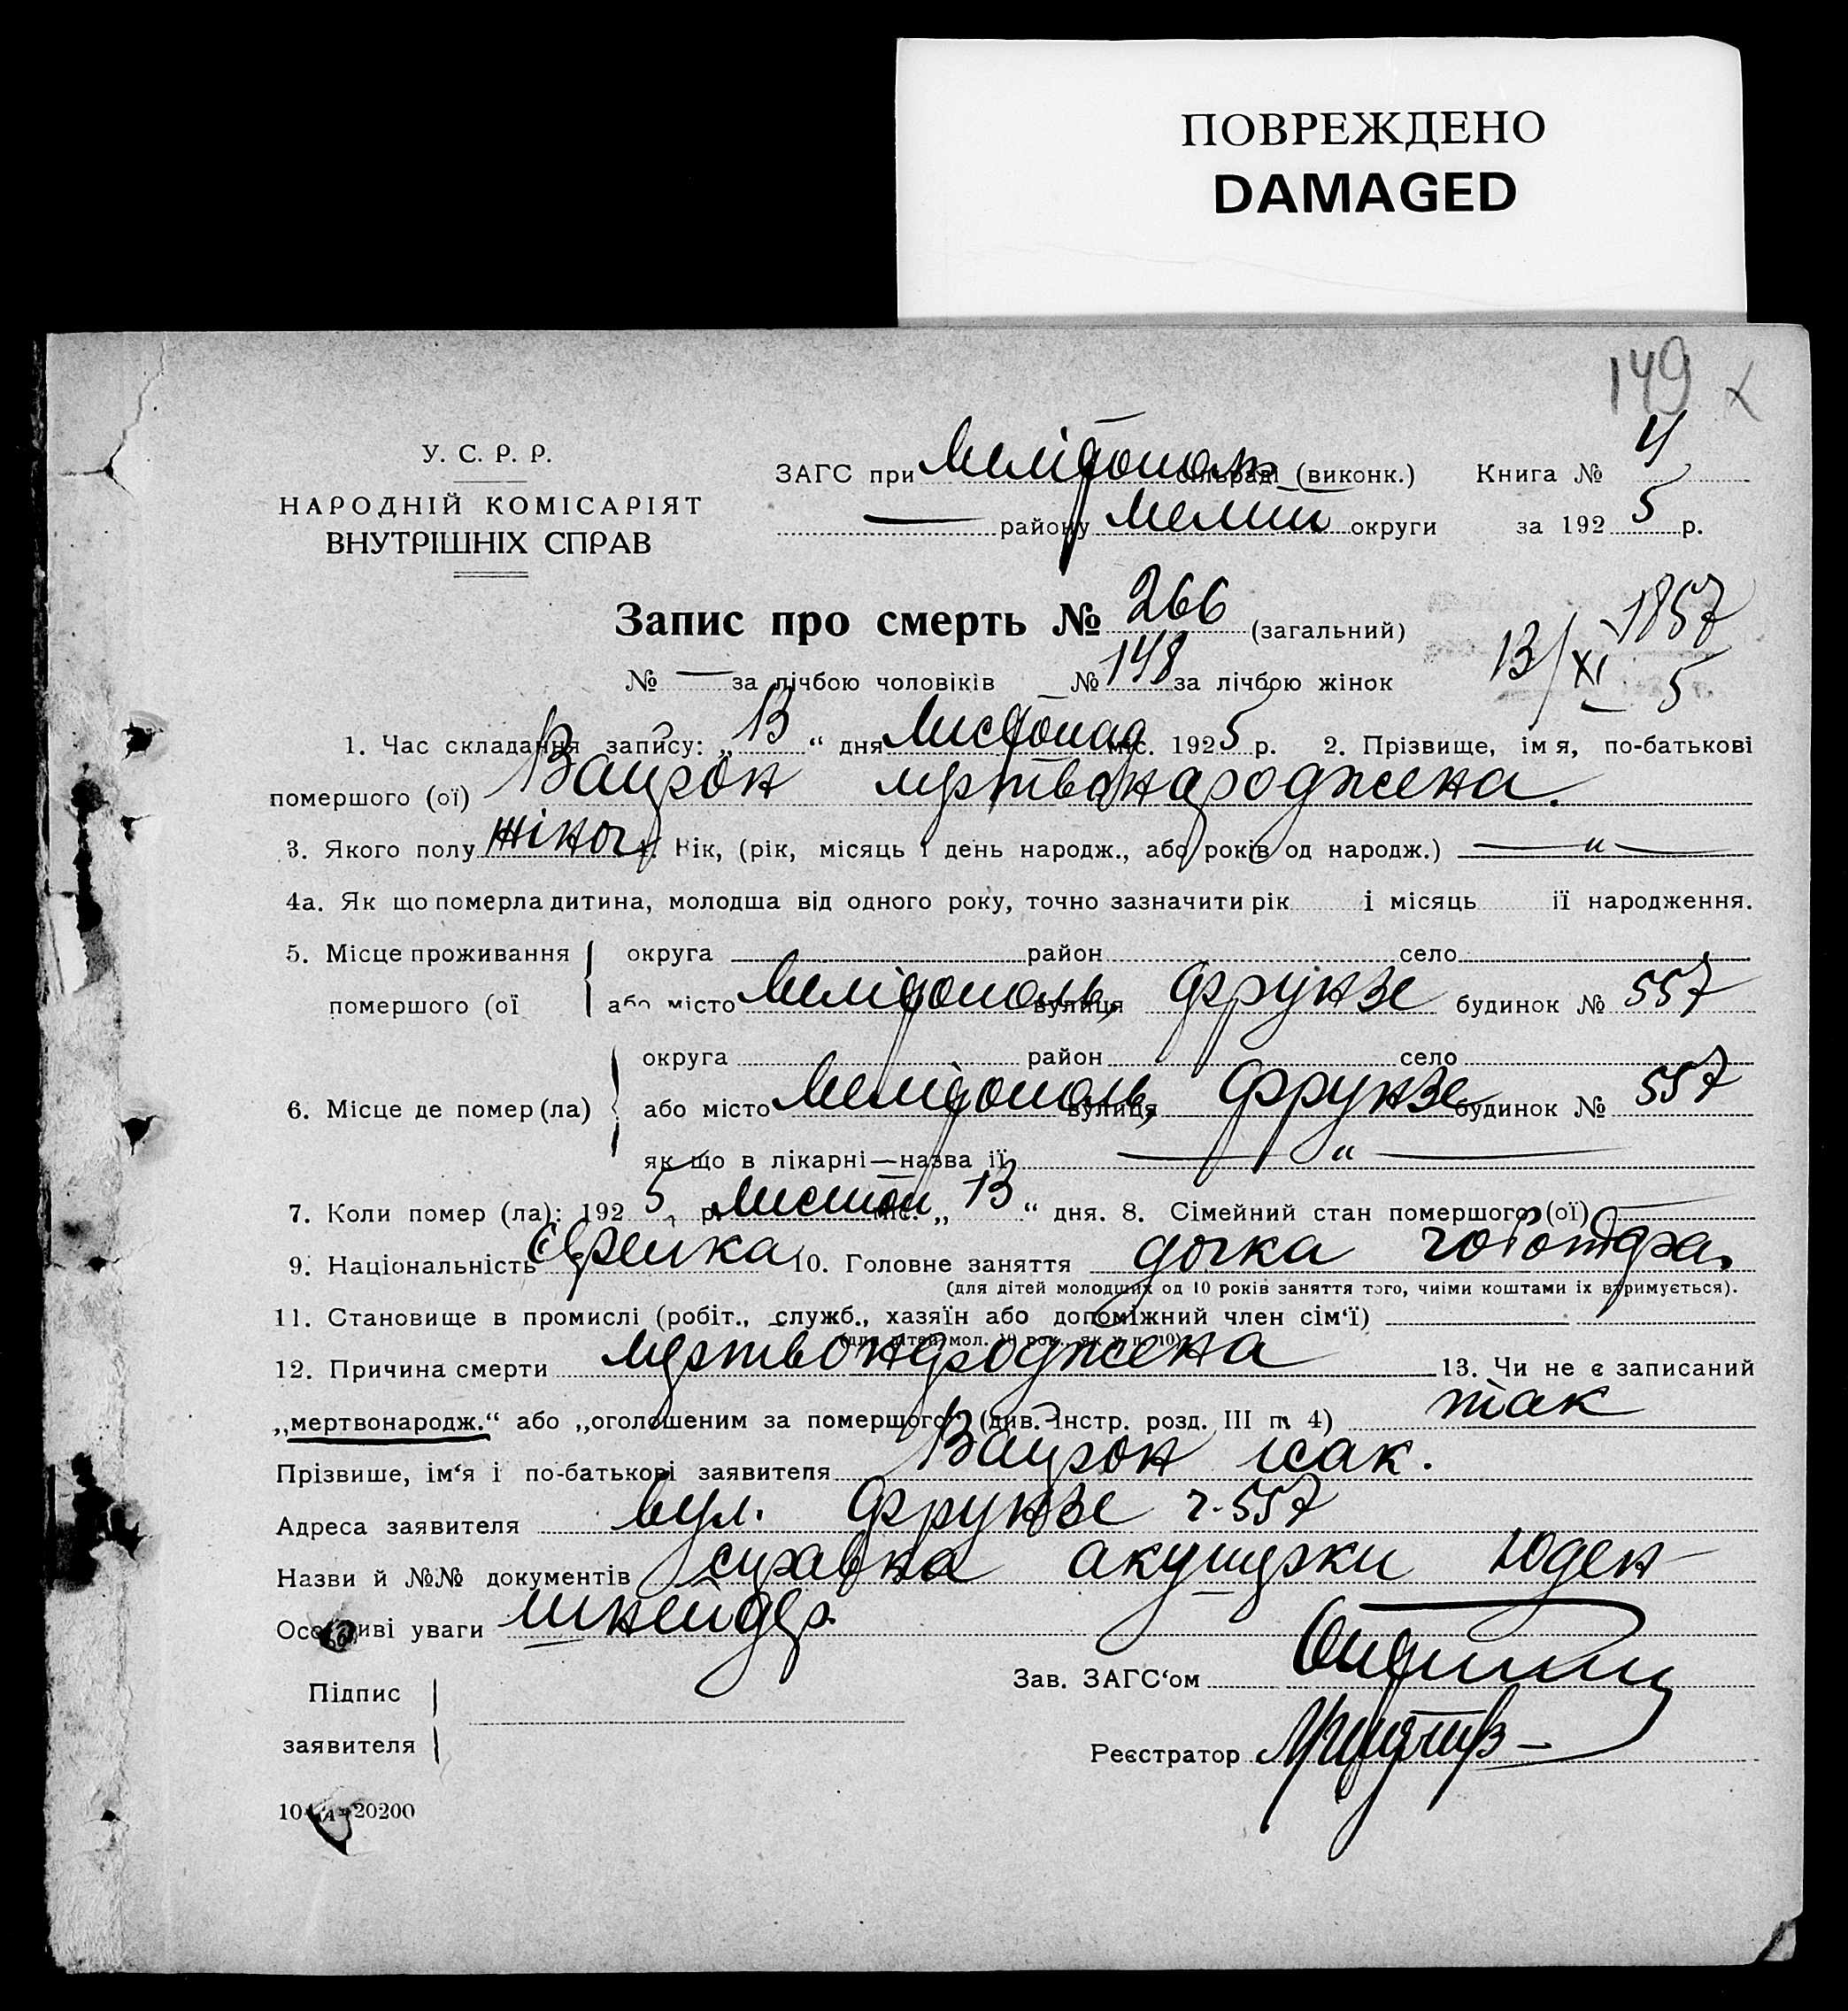 ПОВРЕЖДЕНО
DAMAGED
149
У. С. Р. Р.
НАРОДНІЙ КОМІСАРІЯТ
ВНУТРІШНІХ СПРАВ
ЗАГС при Мелітополь сільраді (виконк.) Книга № 4
— району Меліт округи за 1925 р.
Запис про смерть № 266 (загальний)
1857
13/XI 5
№ — за лічбою чоловіків № 148 за лічбою жінок
1. Час складання запису: „13“ дня Листопад міс. 1925 р. 2. Прізвище, ім я, по-батькові
помершого (ої) мертвонароджена.
3. Якого полу жіноч 4. Вік, (рік, місяць і день народж., або років од народж.) — „ —
4а. Як що померла дитина, молодша від одного року, точно зазначити рік і місяць її народження.
5. Місце проживання округа район село
помершого (ої або місто Мелітополь, вулиця Фрунзе будинок № 557
округа район село
6. Місце де помер (ла) або місто Мелітополь, вулиця Фрунзе будинок № 557
як що в лікарні—назва її — „ —
7. Коли помер (ла): 1925 р. листоп міс. „13“ дня. 8. Сімейний стан помершого (ої) —
9. Національність Єврейка 10. Головне заняття дочка
(для дітей молодших од 10 років заняття того, чиїми коштами їх втримується).
11. Становище в промислі (робіт., служб., хазяїн або допоміжний член сім‘ї) —
(для дітей мол. 10 рок., як у п. 10)
12. Причина смерти мертвонароджена 13. Чи не є записаний
„мертвонародж.“ або „оголошеним за померщого“ (див. Інстр. розд. III п. 4) так
Прізвише, ім‘я і по-батькові заявителя Ісак.
Адреса заявителя вул. Фрунзе ч. 557
Назви й №№ документів справка акушерки Юден-
Особливі уваги шнейдер.
Підпис
заявителя
Зав. ЗАГС‘ом
Реєстратор
20200